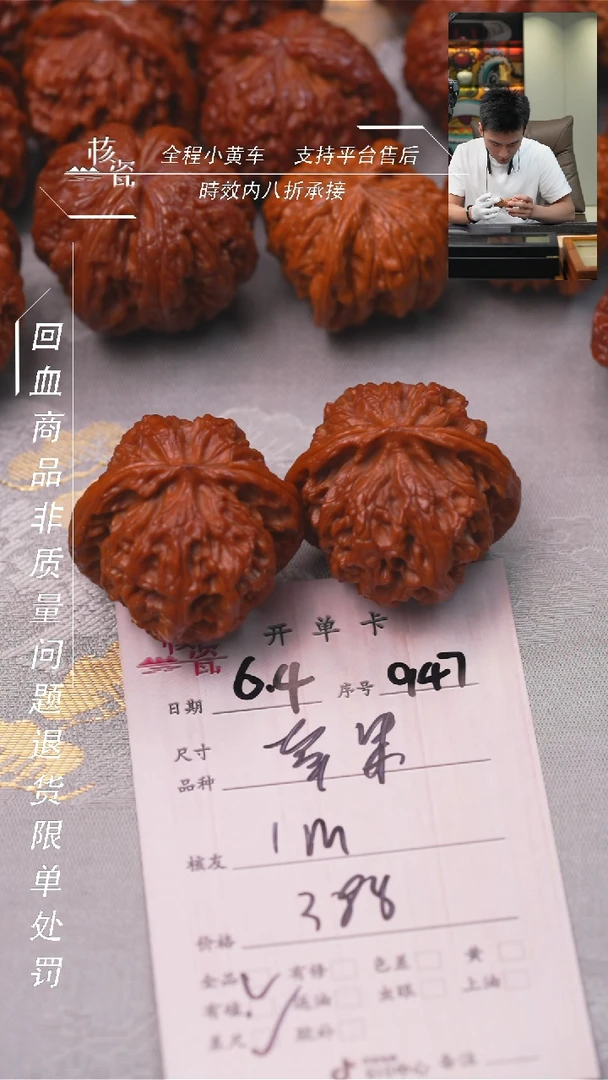 核瓷
全程小黄车 支持平台售后
時效内八折承接
回血商品非质量问题退货限单处罚
核瓷 开单卡
日期 6.4 序号 947
尺寸
品种 苹果
核友 1m
价格 398
全品 有修 色差 黄
有尾 返油 虫眼 上油
差尺 胶补
备注